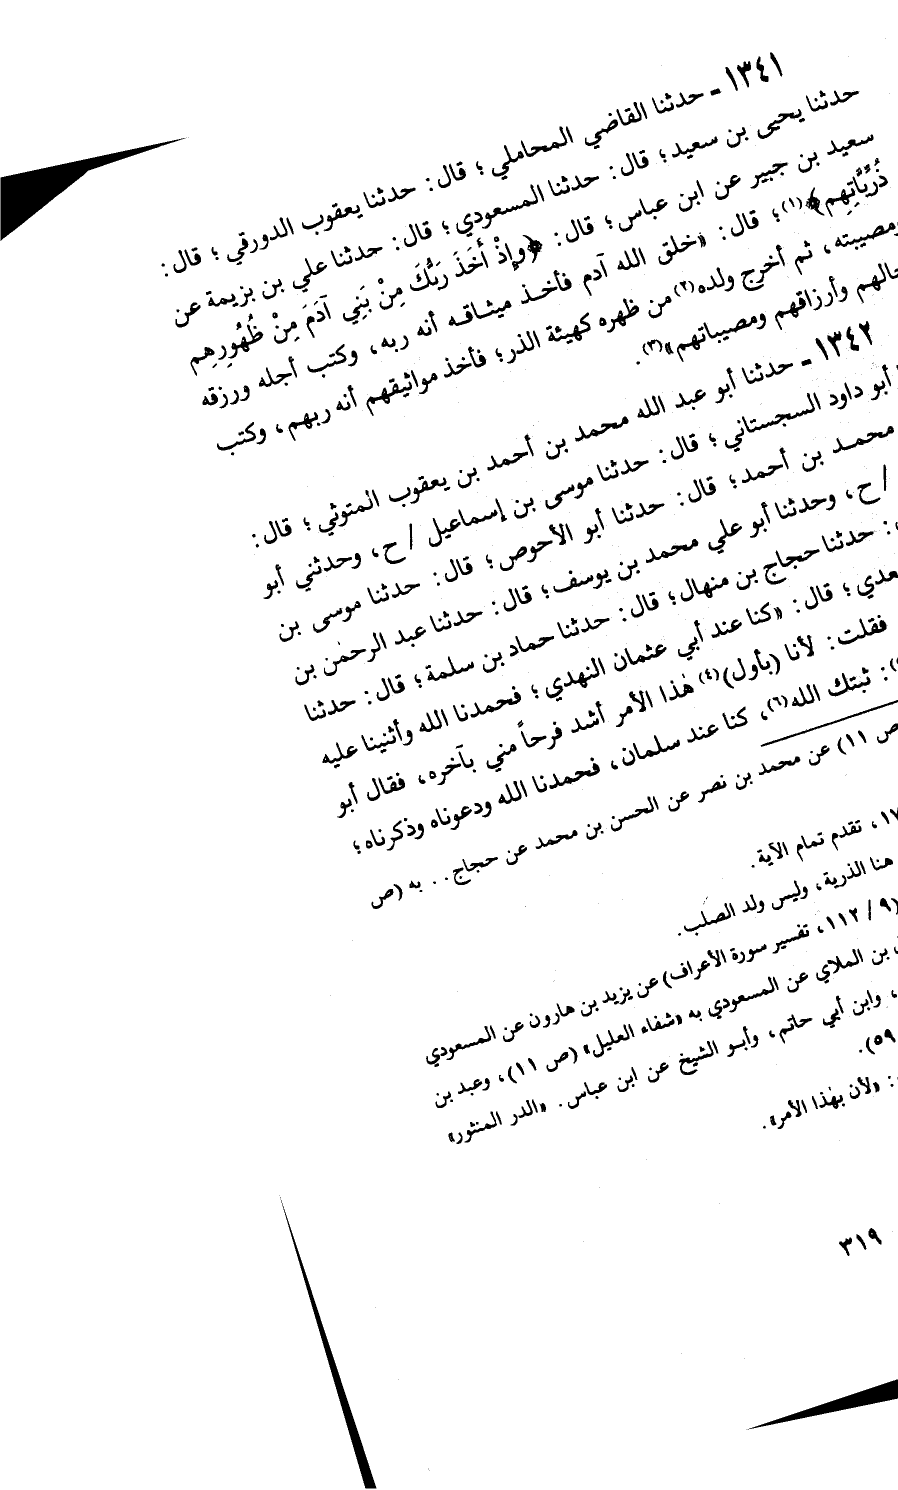 ١٣٤١ - حدثنا القاضي المحاملي ؛ قال : حدثنا يعقوب الدورقي ؛ قال :
حدثنا يحيى بن سعيد ؛ قال : حدثنا المسعودي ؛ قال : حدثنا علي بن بزيمة عن
سعيد بن جبير عن ابن عباس ؛ قال : ﴿وإِذْ أَخَذَ رَبُّكَ مِنْ بَنِي آدَمَ مِنْ ظُهُورِهِم
ذُرِّيَّاتِهِم﴾(١) ؛ قال : «خلق الله آدم فأخـذ ميثـاقـه أنه ربه ، وكتب أجله ورزقه
ومصيبته ، ثم أخرج ولده(٢) من ظهره كهيئة الذر ؛ فأخذ مواثيقهم أنه ربهم ، وكتب
جالهم وأرزاقهم ومصيباتهم»(٣) .
١٣٤٢ - حدثنا أبو عبد الله محمد بن أحمد بن يعقوب المتوثي ؛ قال :
أبو داود السجستاني ؛ قال : حدثنا موسى بن إسماعيل / ح ، وحدثني أبو
محمـد بن أحمد ؛ قال : حدثنا أبو الأحوص ؛ قال : حدثنا موسى بن
/ ح ، وحدثنا أبو علي محمد بن يوسف ؛ قال : حدثنا عبد الرحمٰن بن
: حدثنا حجاج بن منهال ؛ قال : حدثنا حماد بن سلمة ؛ قال : حدثنا
عدي ؛ قال : «كنا عند أبي عثمان النهدي ؛ فحمدنا الله وأثنينا عليه
فقلت : لأنا (بأول)(٤) هٰذا الأمر أشد فرحاً مني بآخره ، فقال أبو
: ثبتك الله(٦) ، كنا عند سلمان ، فحمدنا الله ودعوناه وذكرناه ؛
ص ١١) عن محمد بن نصر عن الحسن بن محمد عن حجاج . . به (ص
١٧ ، تقدم تمام الآية .
هنا الذرية ، وليس ولد الصلب .
(٩ / ١١٢ ، تفسير سورة الأعراف) عن يزيد بن هارون عن المسعودي
بن الملاي عن المسعودي به «شفاء العليل» (ص ١١) ، وعبد بن
، وابن أبي حاتم ، وأبـو الشيخ عن ابن عباس . «الدر المنثور»
٥٩) .
: «لأن بهٰذا الأمر» .
٣١٩